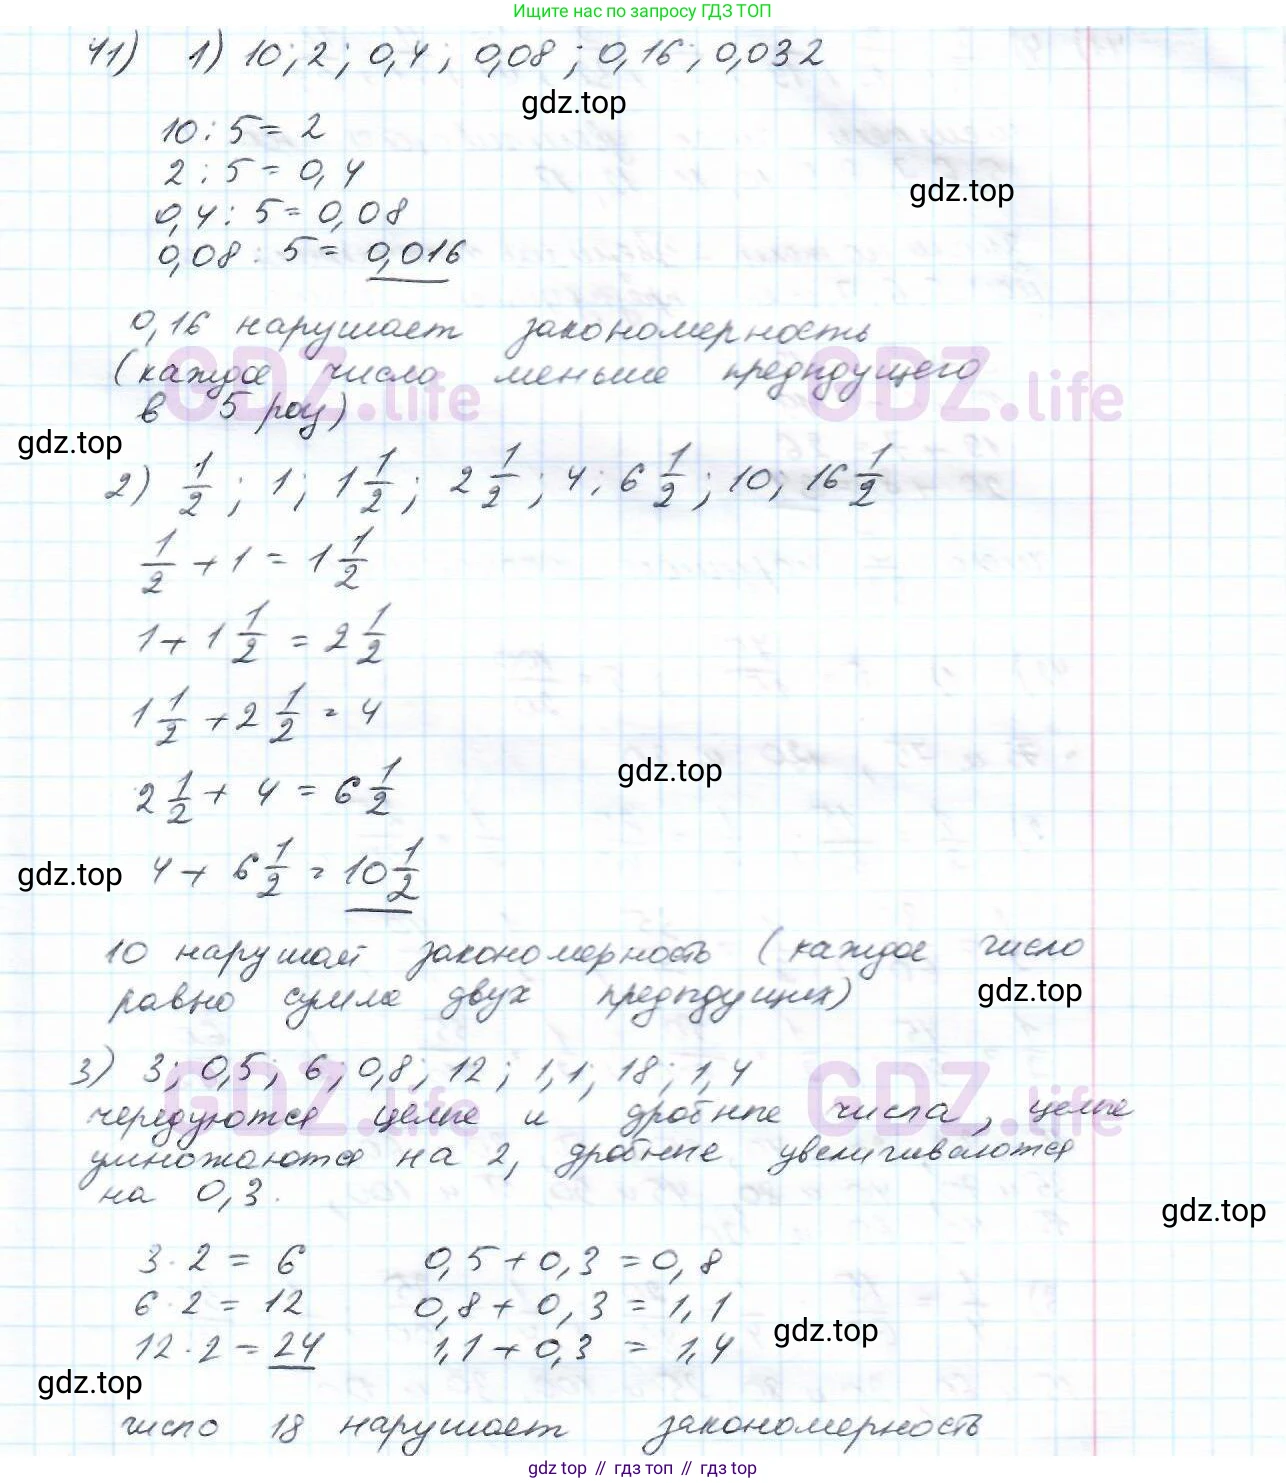 Ищите нас по запросу ГДЗ ТОП
41) 1) 10; 2; 0,4; 0,08; 0,16; 0,032
gdz.top
10 : 5 = 2
2 : 5 = 0,4
gdz.top
0,4 : 5 = 0,08
0,08 : 5 = 0,016
0,16 нарушает закономерность
(каждое число меньше предыдущего
GDZ.life GDZ.life
в 5 раз)
gdz.top
2) 1/2; 1; 1 1/2; 2 1/2; 4; 6 1/2; 10; 16 1/2
1/2 + 1 = 1 1/2
1 + 1 1/2 = 2 1/2
1 1/2 + 2 1/2 = 4
gdz.top
2 1/2 + 4 = 6 1/2
gdz.top
4 + 6 1/2 = 10 1/2
10 нарушает закономерность (каждое число
равно сумме двух предыдущих)
gdz.top
3) 3; 0,5; 6; 0,8; 12; 1,1; 18; 1,4
GDZ.life GDZ.life
чередуются целые и дробные числа, целые
умножаются на 2, дробные увеличиваются
на 0,3.
gdz.top
3 · 2 = 6 0,5 + 0,3 = 0,8
6 · 2 = 12 0,8 + 0,3 = 1,1
gdz.top
12 · 2 = 24 1,1 + 0,3 = 1,4
gdz.top
число 18 нарушает закономерность
gdz top // гдз топ // гдз top